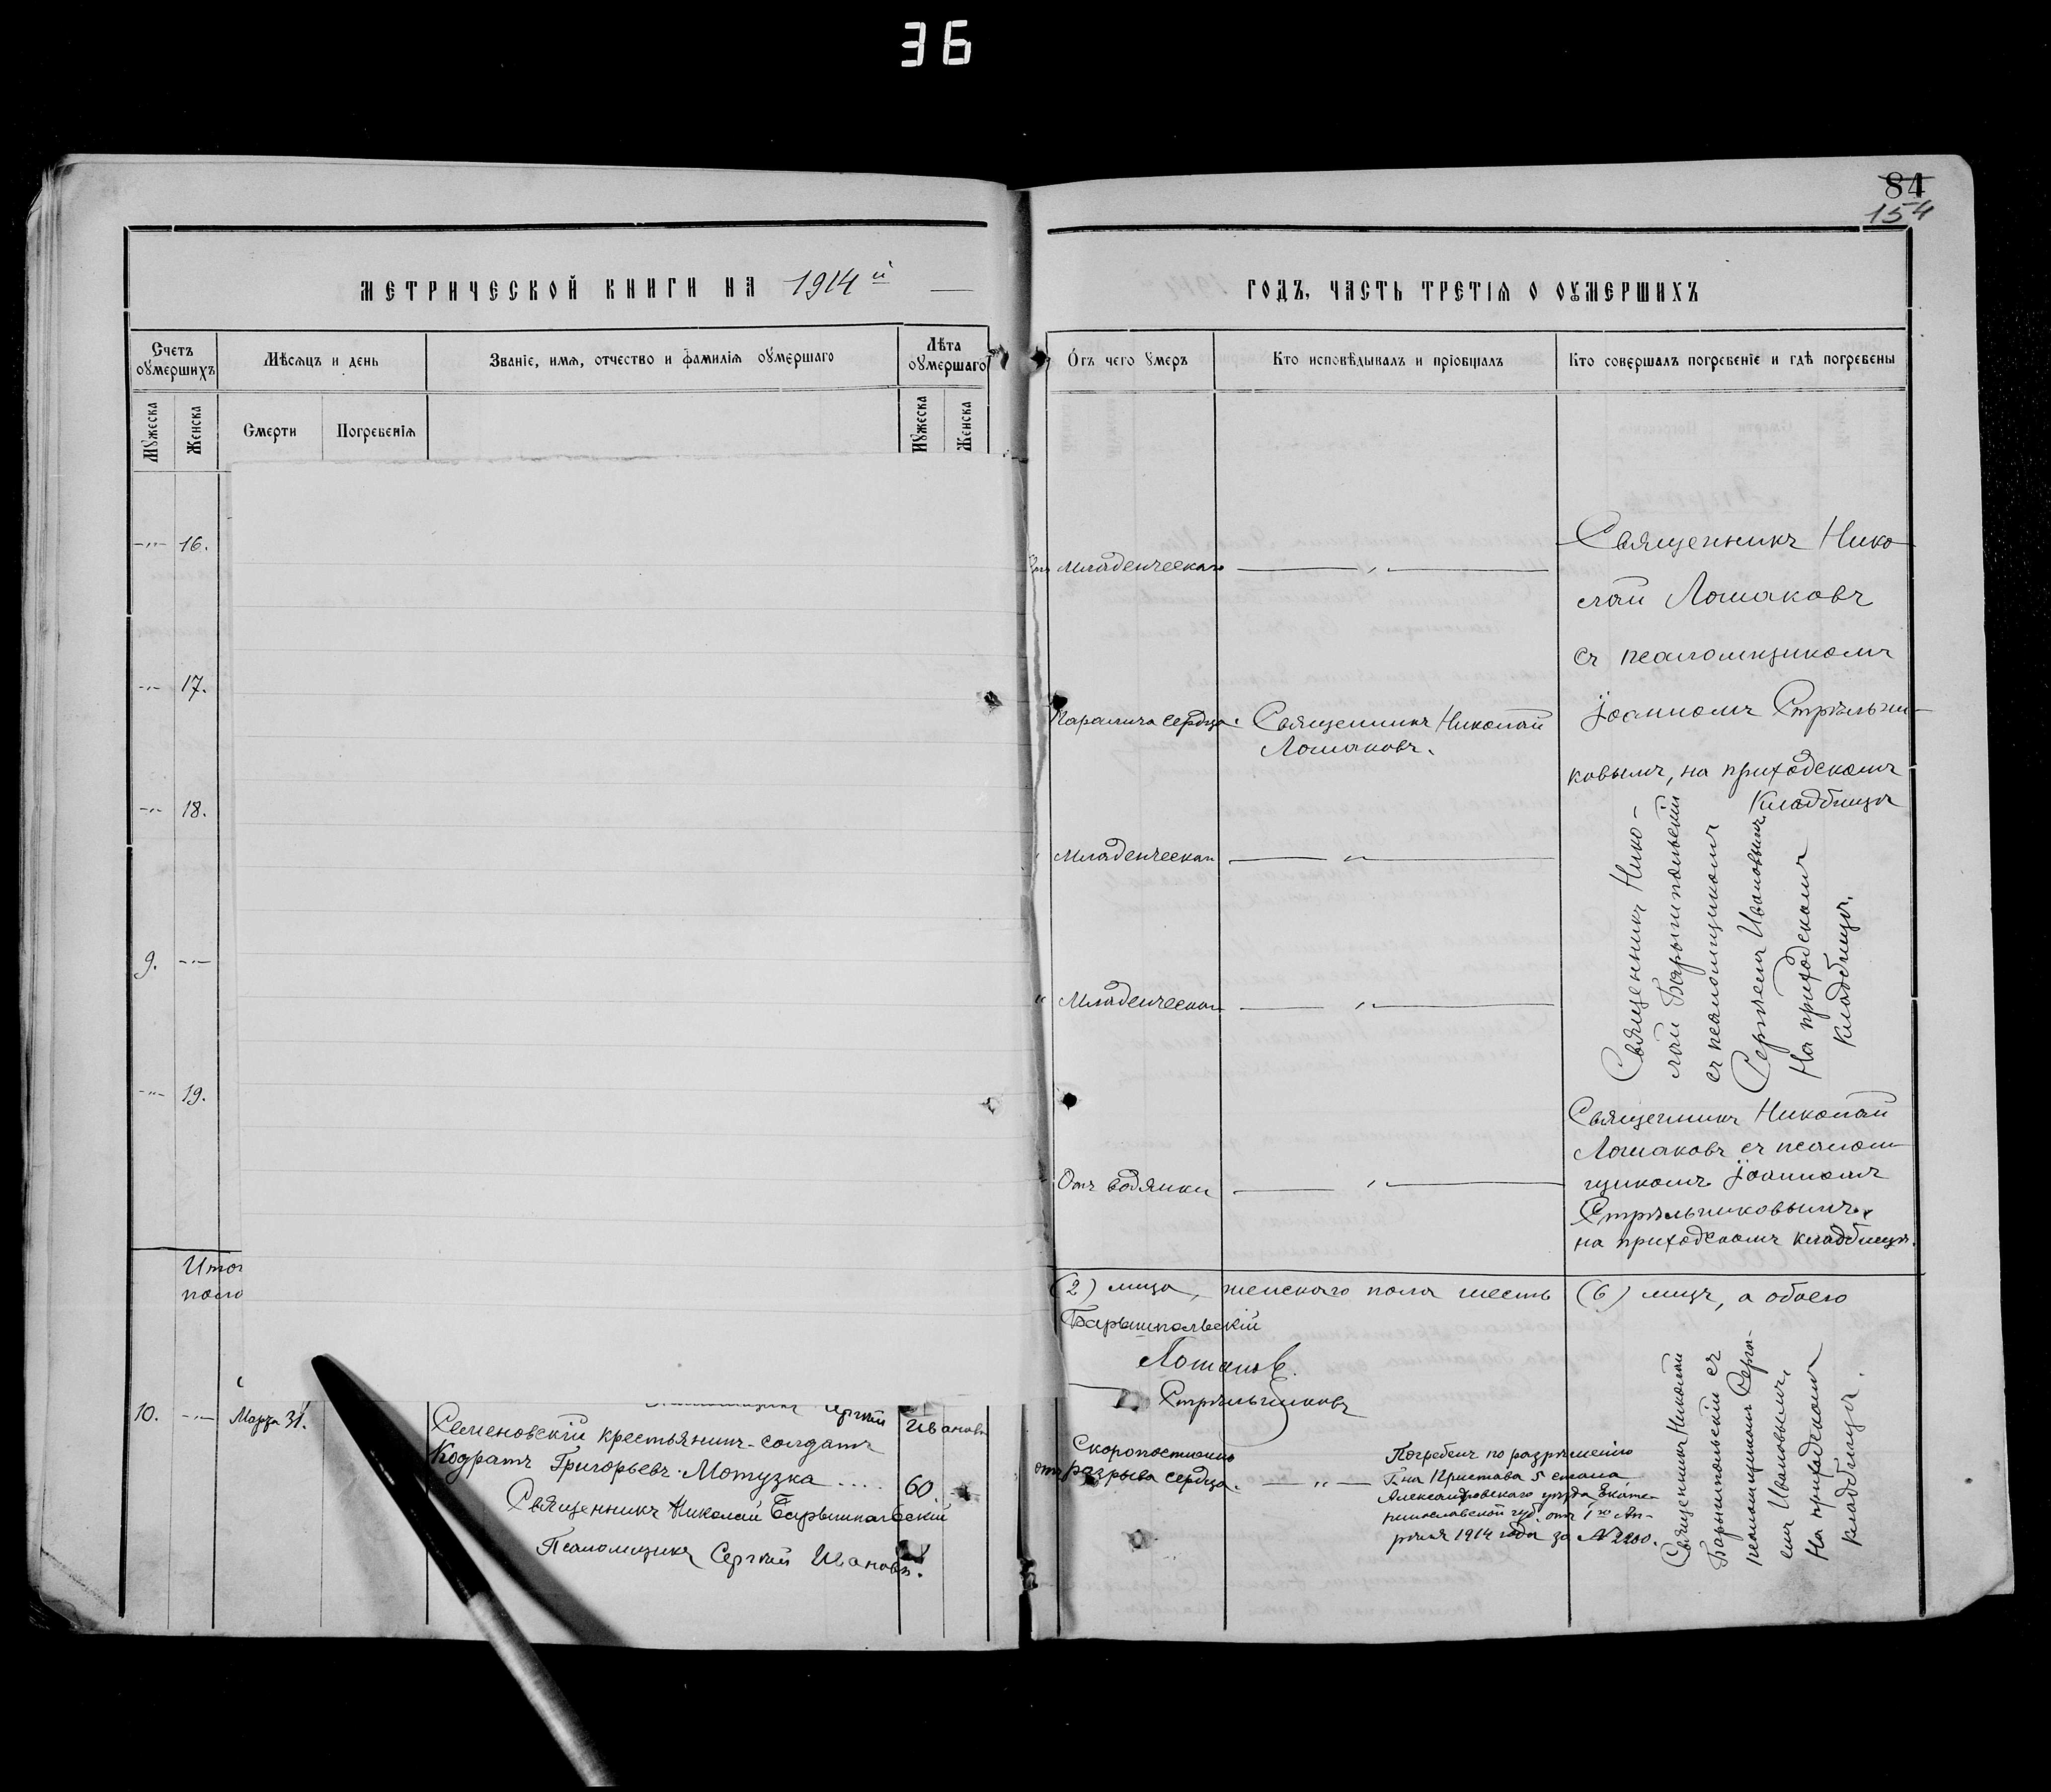 36
84
154
МЕТРИЧЕСКОЙ КНИГИ НА 1914й
ГОДЪ, ЧАСТЬ ТРЕТІЯ О ОУМЕРШИХЪ
Счетъ оумершихъ
Мѣсяцъ и день
Званіе, имя, отчество и фамилія оумершаго
Лѣта оумершаго
Отъ чего умеръ
Кто исповѣдывалъ и пріобщалъ
Кто совершалъ погребеніе и гдѣ погребены
Мужеска
Женска
Смерти
Погребенія
Мужеска
Женска
16.
Младенческаго
Священникъ Нико
лай Ломаковъ
съ псаломщикомъ
Іоанномъ Стрѣльни-
ковымъ, на приходскомъ
кладбищѣ
17.
Паралича сердца.
Священникъ Николай
Ломаковъ.
18.
Младенческая
Священникъ Нико-
лай Барышпольскій
съ псаломщикомъ
Сергѣемъ Ивановымъ.
На приходскомъ
кладбищѣ.
9.
Младенческая
19.
Отъ водянки
Священникъ Николай
Ломаковъ съ псалом-
щикомъ Іоанномъ
Стрѣльниковымъ,
на приходскомъ кладбищѣ.
(2) лица, женскаго пола шесть (6) лицъ, а обоего
Барышпольскій
Ломаковъ.
Стрѣльниковъ
Сергѣй Ивановъ
10.
Марта 31.
Семеновскій крестьянинъ-солдатъ
Кодратъ Григорьевъ Мотузка ....
60
Священникъ Николай Барышпольскій
Псаломщикъ Сергѣй Ивановъ.
Скоропостижно
отъ разрыва сердца.
Погребенъ по разрѣшенію
Г-на Пристава 5 стана
Александровскаго уѣзда Екате-
ринославской губ. отъ 1го Ап-
рѣля 1914 года за №2200.
Священникъ Николай
Барышпольскій съ
псаломщикомъ Серге-
емъ Ивановымъ.
На приходскомъ
кладбищѣ.